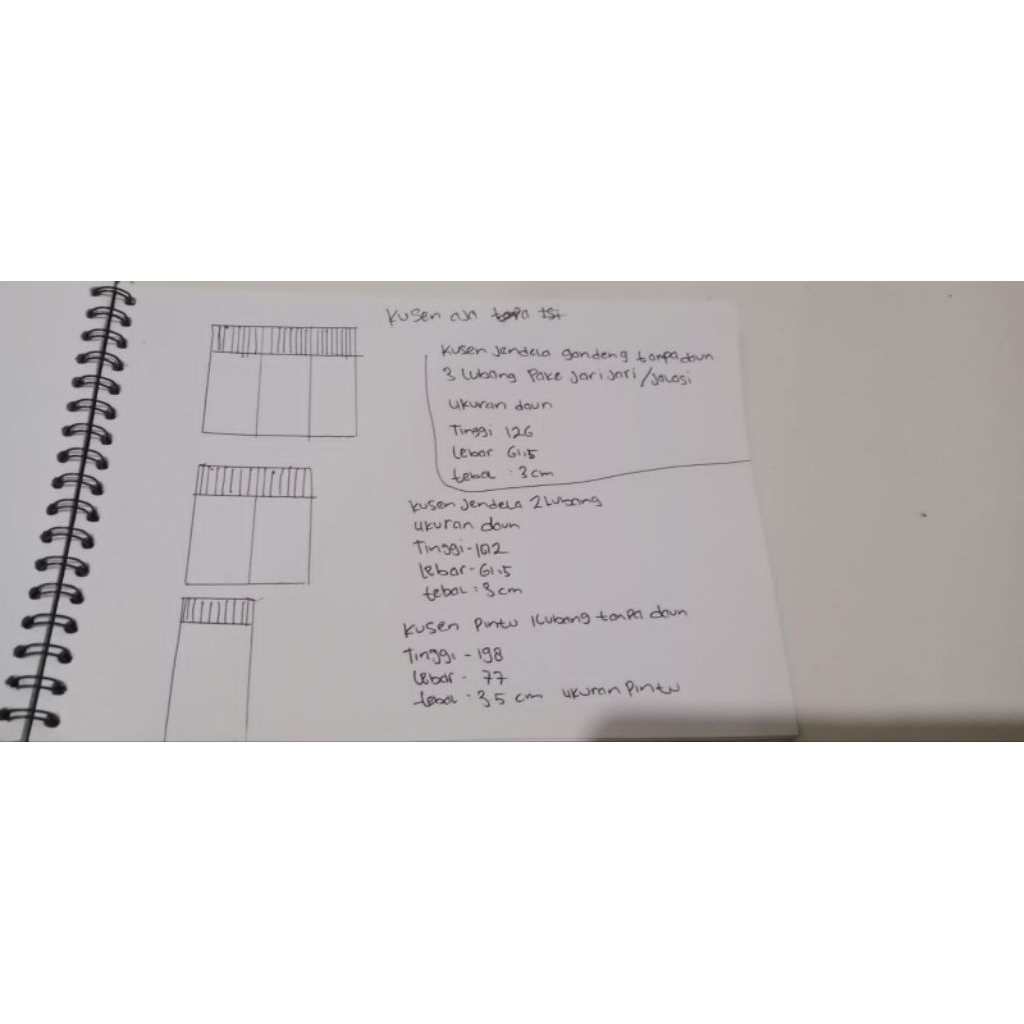 Kusen aja tanpa isi
Kusen Jendela gandeng tanpa daun
3 lubang Pake Jari Jari/Jalosi
Ukuran daun
Tinggi 126
Lebar 61,5
tebal : 3 cm
Kusen Jendela 2 Lubang
Ukuran daun
Tinggi - 102
Lebar - 61,5
tebal : 3 cm
Kusen Pintu 1 Lubang tanpa daun
Tinggi - 198
Lebar - 77
tebal : 3,5 cm Ukuran Pintu